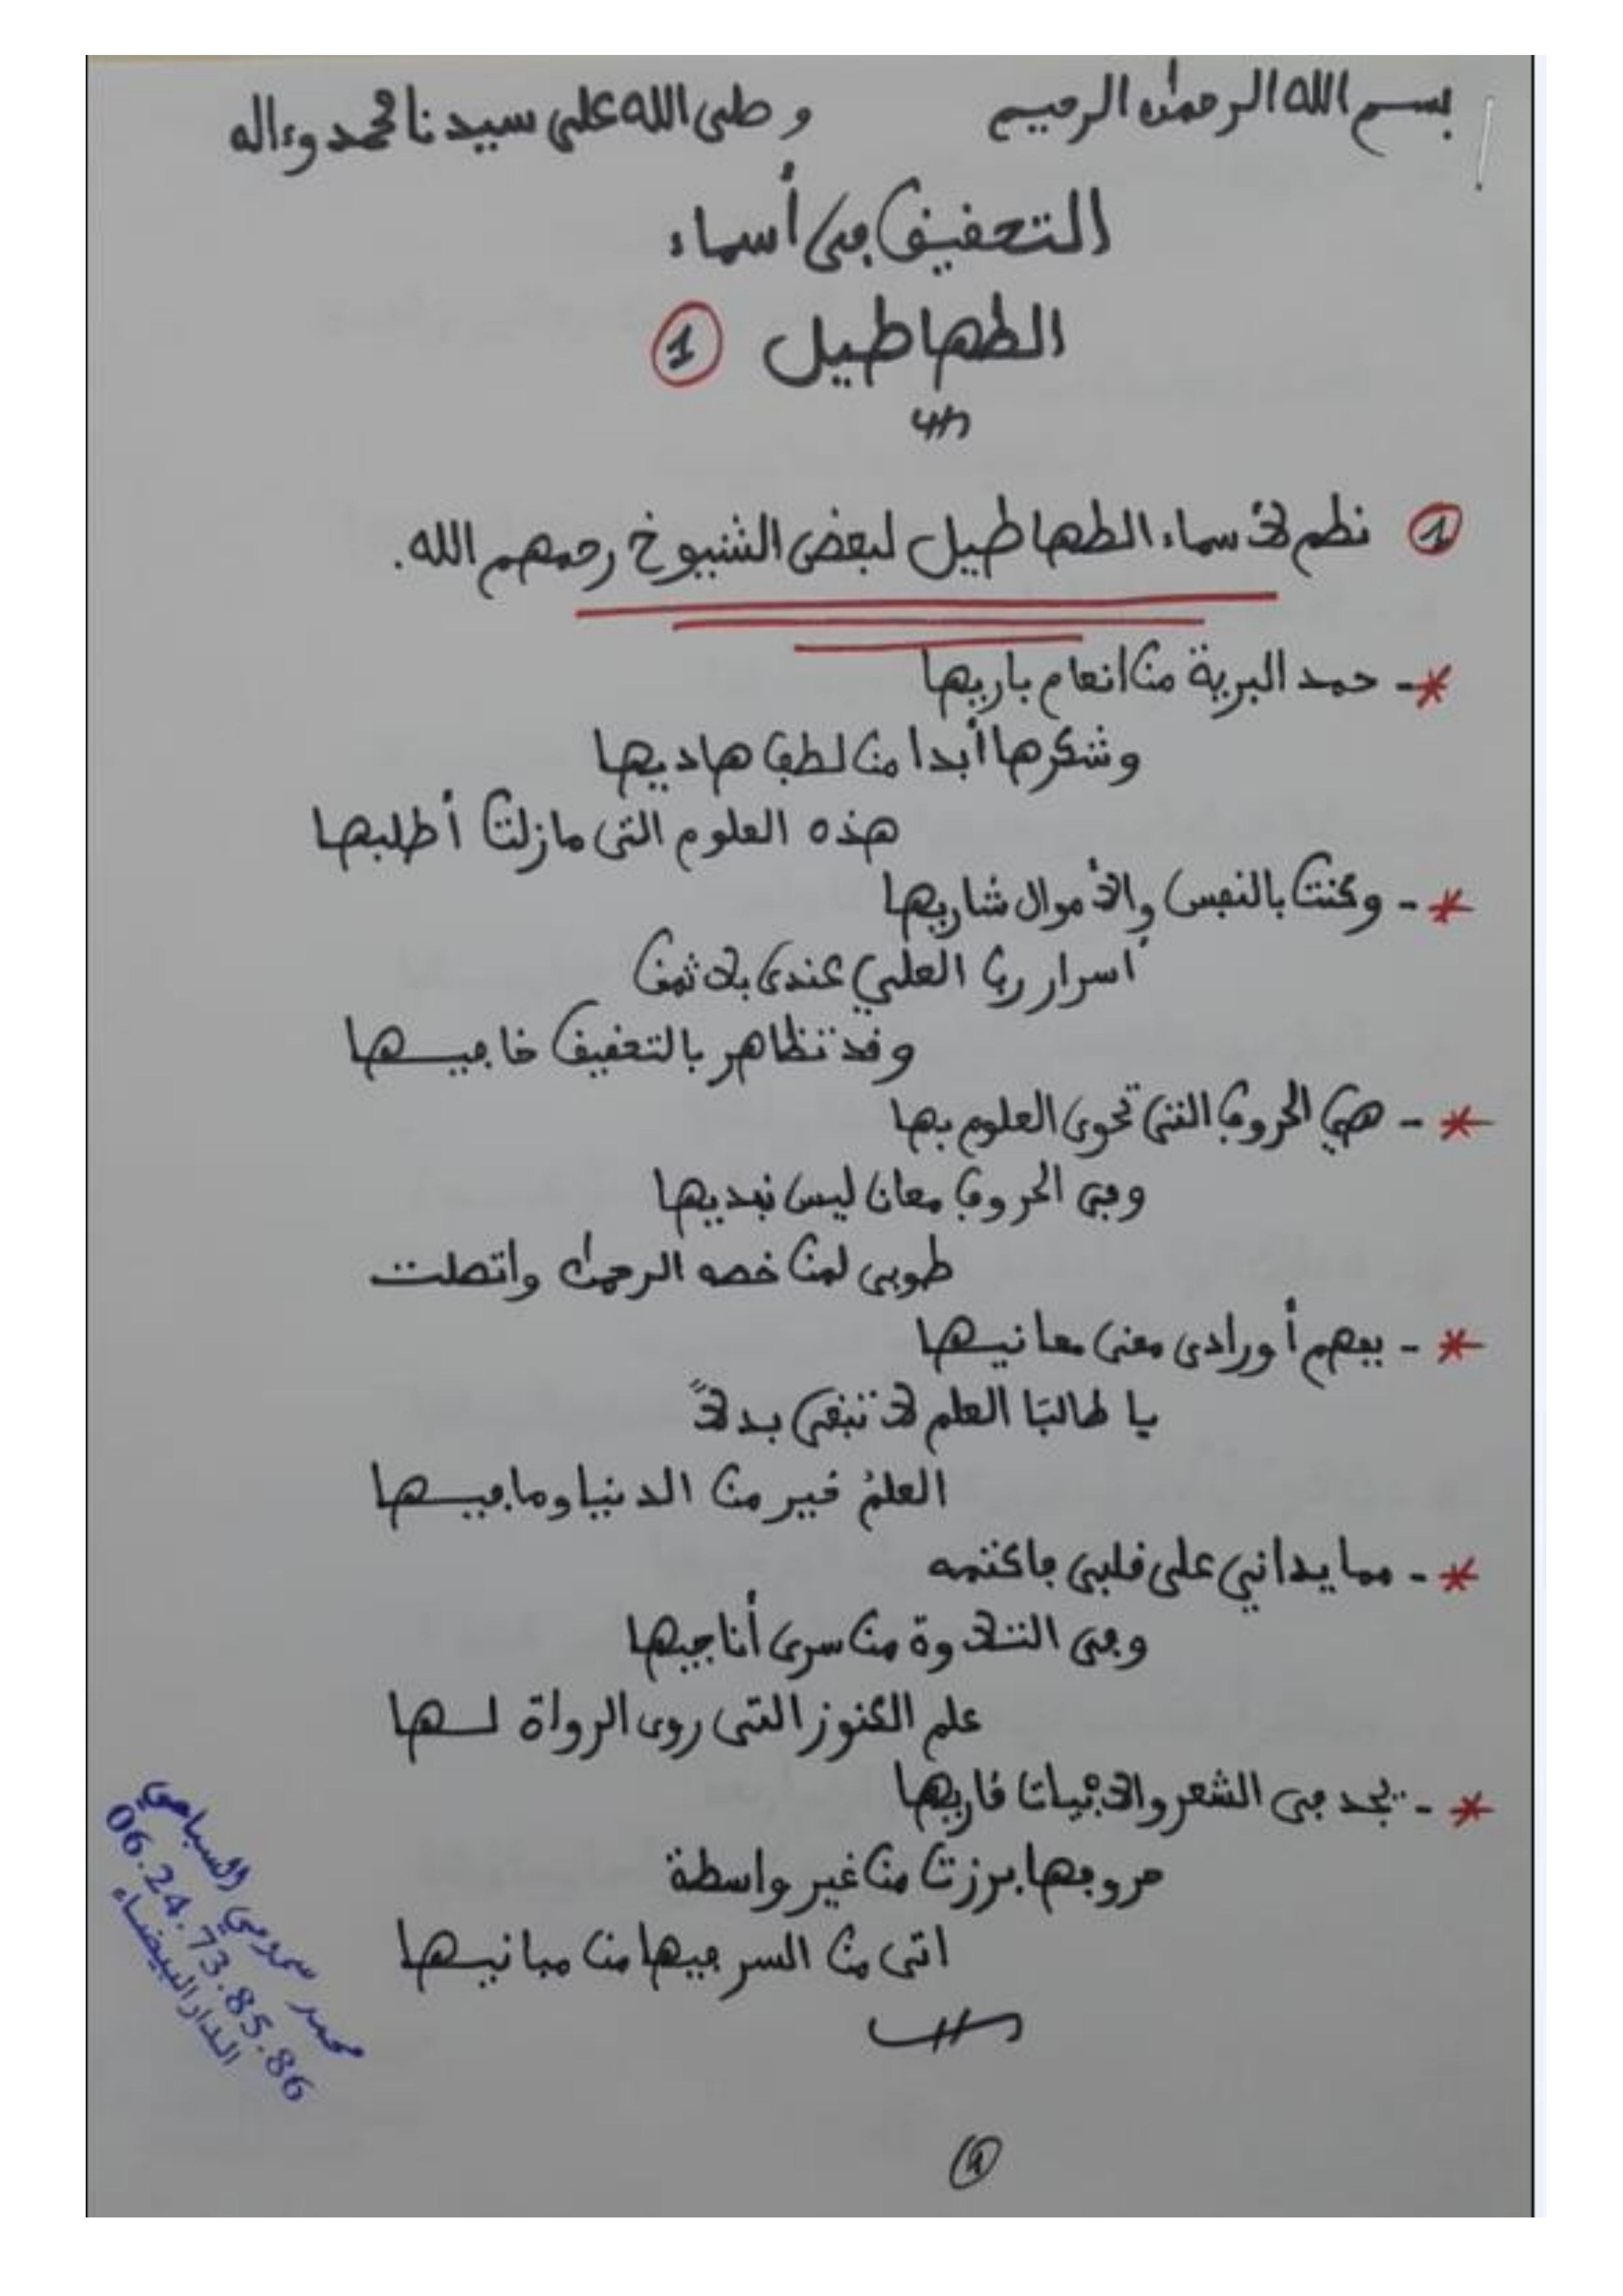 بسم الله الرحمن الرحيم وصلى الله على سيدنا محمد وءاله
التحقيق في أسماء
الطهاطيل 1
1 نظم لأسماء الطهاطيل لبعض الشيوخ رحمهم الله.
*- حمد البرية من انعام باريها
وشكرها أبدا من لطف هاديها
هذه العلوم التى مازلت أطلبها
*- وكنت بالنفس والأموال شاريها
أسرار رب العلي عندى بلا ثمن
وقد تظاهر بالتحقيق خافيها
*- هي الحروف التى تحوى العلوم بها
وفى الحروف معان ليس نبديها
طوبى لمن خصه الرحمن واتصلت
*- بفهم أورادى معنى معانيها
يا طالب العلم لا تبقى بدلاً
العلم خير من الدنيا وما فيها
*- مما يدانيي على قلبى فاكتمه
وفى التلاوة من سرى أناجيها
علم الكنوز التى روى الرواة لها
*- يجد فى الشعر والأبيات قاريها
حروفها برزت من غير واسطة
اتى من السر فيها من مبانيها
1
محمد سرومي السباعي
06.24.73.85.86
الدار البيضاء